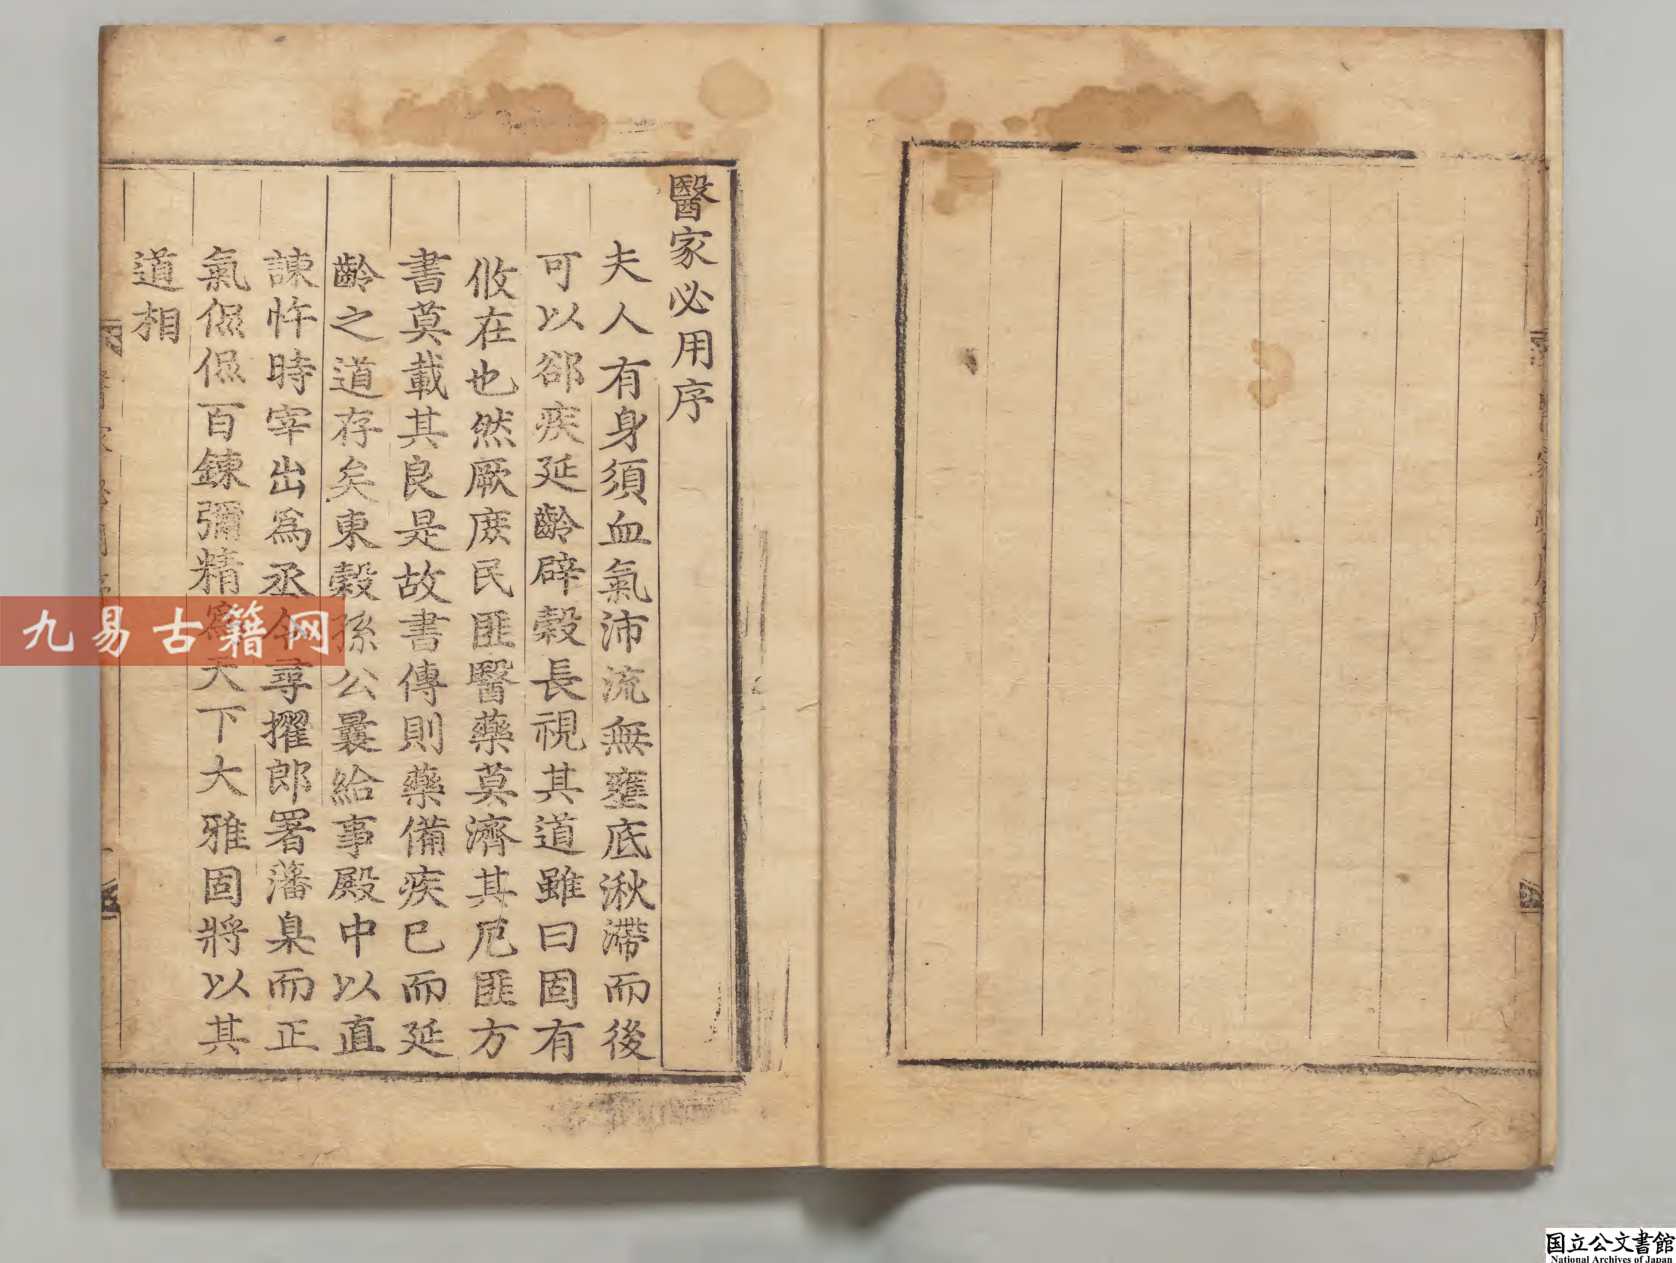 醫家必用序
夫人有身須血氣沛流無壅底湫滯而後
可以郤疾延齡辟穀長視其道雖曰固有
攸在也然厥庶民匪醫藥莫濟其厄匪方
書莫載其良是故書傳則藥備疾已而延
齡之道存矣東穀孫公曩給事殿中以直
諫忤時宰出爲丞令尋擢郎署藩臬而正
氣侃侃百鍊彌精寫天下大雅固將以其
道相
九易古籍网
国立公文書館
National Archives of Japan